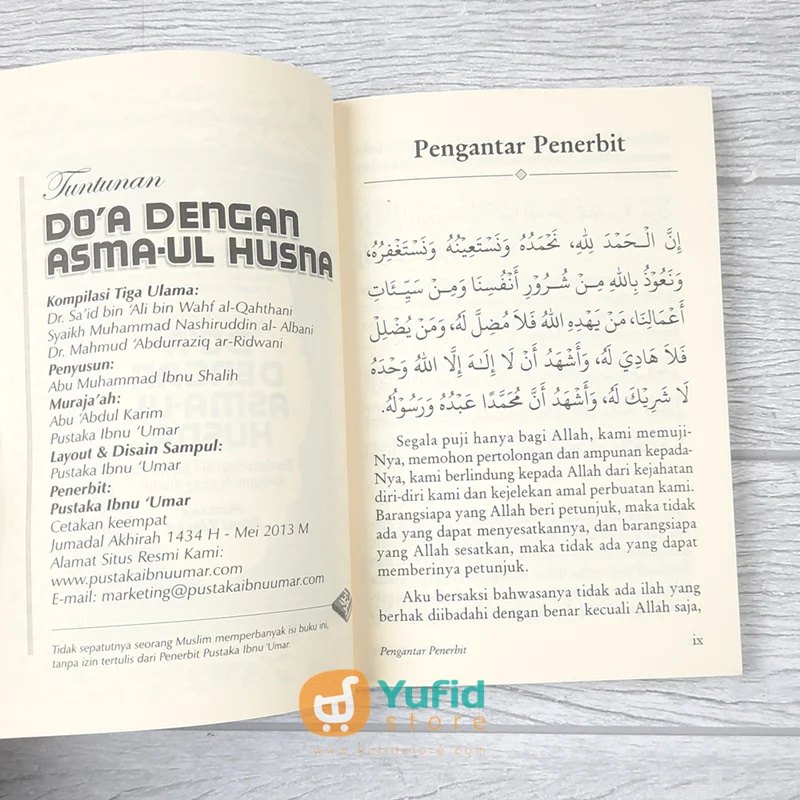 Tuntunan
DO'A DENGAN
ASMA-UL HUSNA
Kompilasi Tiga Ulama:
Dr. Sa'id bin 'Ali bin Wahf al-Qahthani
Syaikh Muhammad Nashiruddin al- Albani
Dr. Mahmud 'Abdurraziq ar-Ridwani
Penyusun:
Abu Muhammad Ibnu Shalih
Muraja'ah:
Abu 'Abdul Karim
Pustaka Ibnu 'Umar
Layout & Disain Sampul:
Pustaka Ibnu 'Umar
Penerbit:
Pustaka Ibnu 'Umar
Cetakan keempat
Jumadal Akhirah 1434 H - Mei 2013 M
Alamat Situs Resmi Kami:
www.pustakaibnuumar.com
E-mail: marketing@pustakaibnuumar.com
Tidak sepatutnya seorang Muslim memperbanyak isi buku ini,
tanpa izin tertulis dari Penerbit Pustaka Ibnu 'Umar.
Pengantar Penerbit
إِنَّ الْـحَمْدَ لِلهِ، نَحْمَدُهُ وَنَسْتَعِيْنُهُ وَنَسْتَغْفِرُهُ،
وَنَعُوْذُ بِاللهِ مِـنْ شُـرُوْرِ أَنْفُسِنَا وَمِـنْ سَيِّـئَاتِ
أَعْمَالِنَا، مَنْ يَهْدِهِ اللهُ فَلاَ مُضِلَّ لَهُ، وَمَنْ يُضْلِلْ
فَلاَ هَادِيَ لَهُ، وَأَشْهَدُ أَنْ لَا إِلَـٰهَ إِلَّا اللهُ وَحْدَهُ
لَا شَرِيْكَ لَهُ، وَأَشْهَدُ أَنَّ مُحَمَّدًا عَبْدُهُ وَرَسُوْلُهُ.
Segala puji hanya bagi Allah, kami memuji-
Nya, memohon pertolongan dan ampunan kepada-
Nya, kami berlindung kepada Allah dari kejahatan
diri-diri kami dan kejelekan amal perbuatan kami.
Barangsiapa yang Allah beri petunjuk, maka tidak
ada yang dapat menyesatkannya, dan barangsiapa
yang Allah sesatkan, maka tidak ada yang dapat
memberinya petunjuk.
Aku bersaksi bahwasanya tidak ada ilah yang
berhak diibadahi dengan benar kecuali Allah saja,
Pengantar Penerbit
ix
Yufid
store
www.yufidstore.com